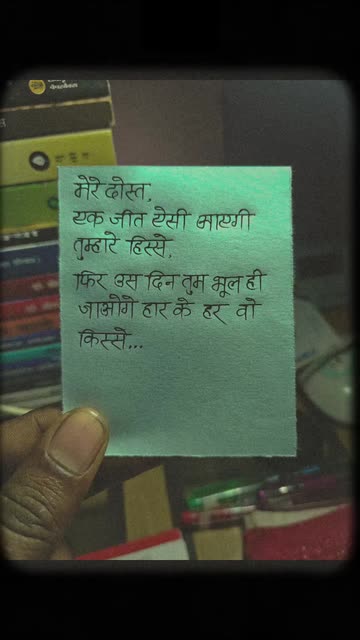 मेरे दोस्त,
एक जीत ऐसी आएगी
तुम्हारे हिस्से,
फिर उस दिन तुम भूल ही
जाओगे हार के हर वो
किस्से...